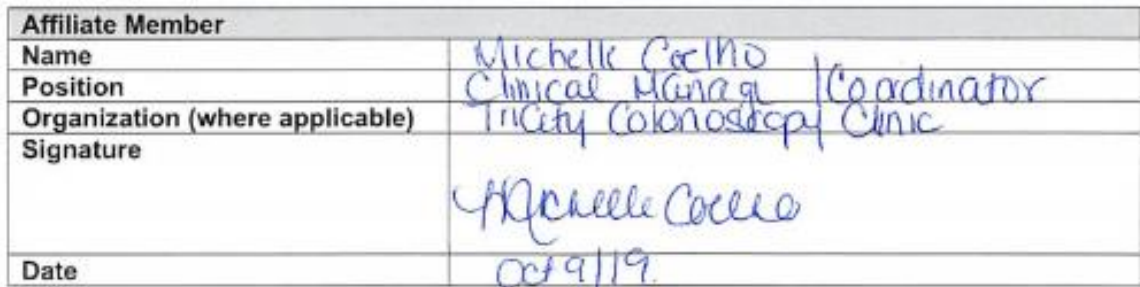 Affiliate Member
Name Michelle Coelho
Position Clinical Manag / Coordinator
Organization (where applicable) TriCity Colonoscopy Clinic
Signature Michelle Coelho
Date Oct 9/19.